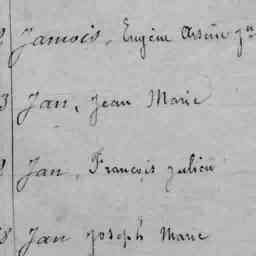 Jamois, Eugène Arsène
3 Jan, Jean Marie
Jan, François Julien
8 Jan Joseph Marie